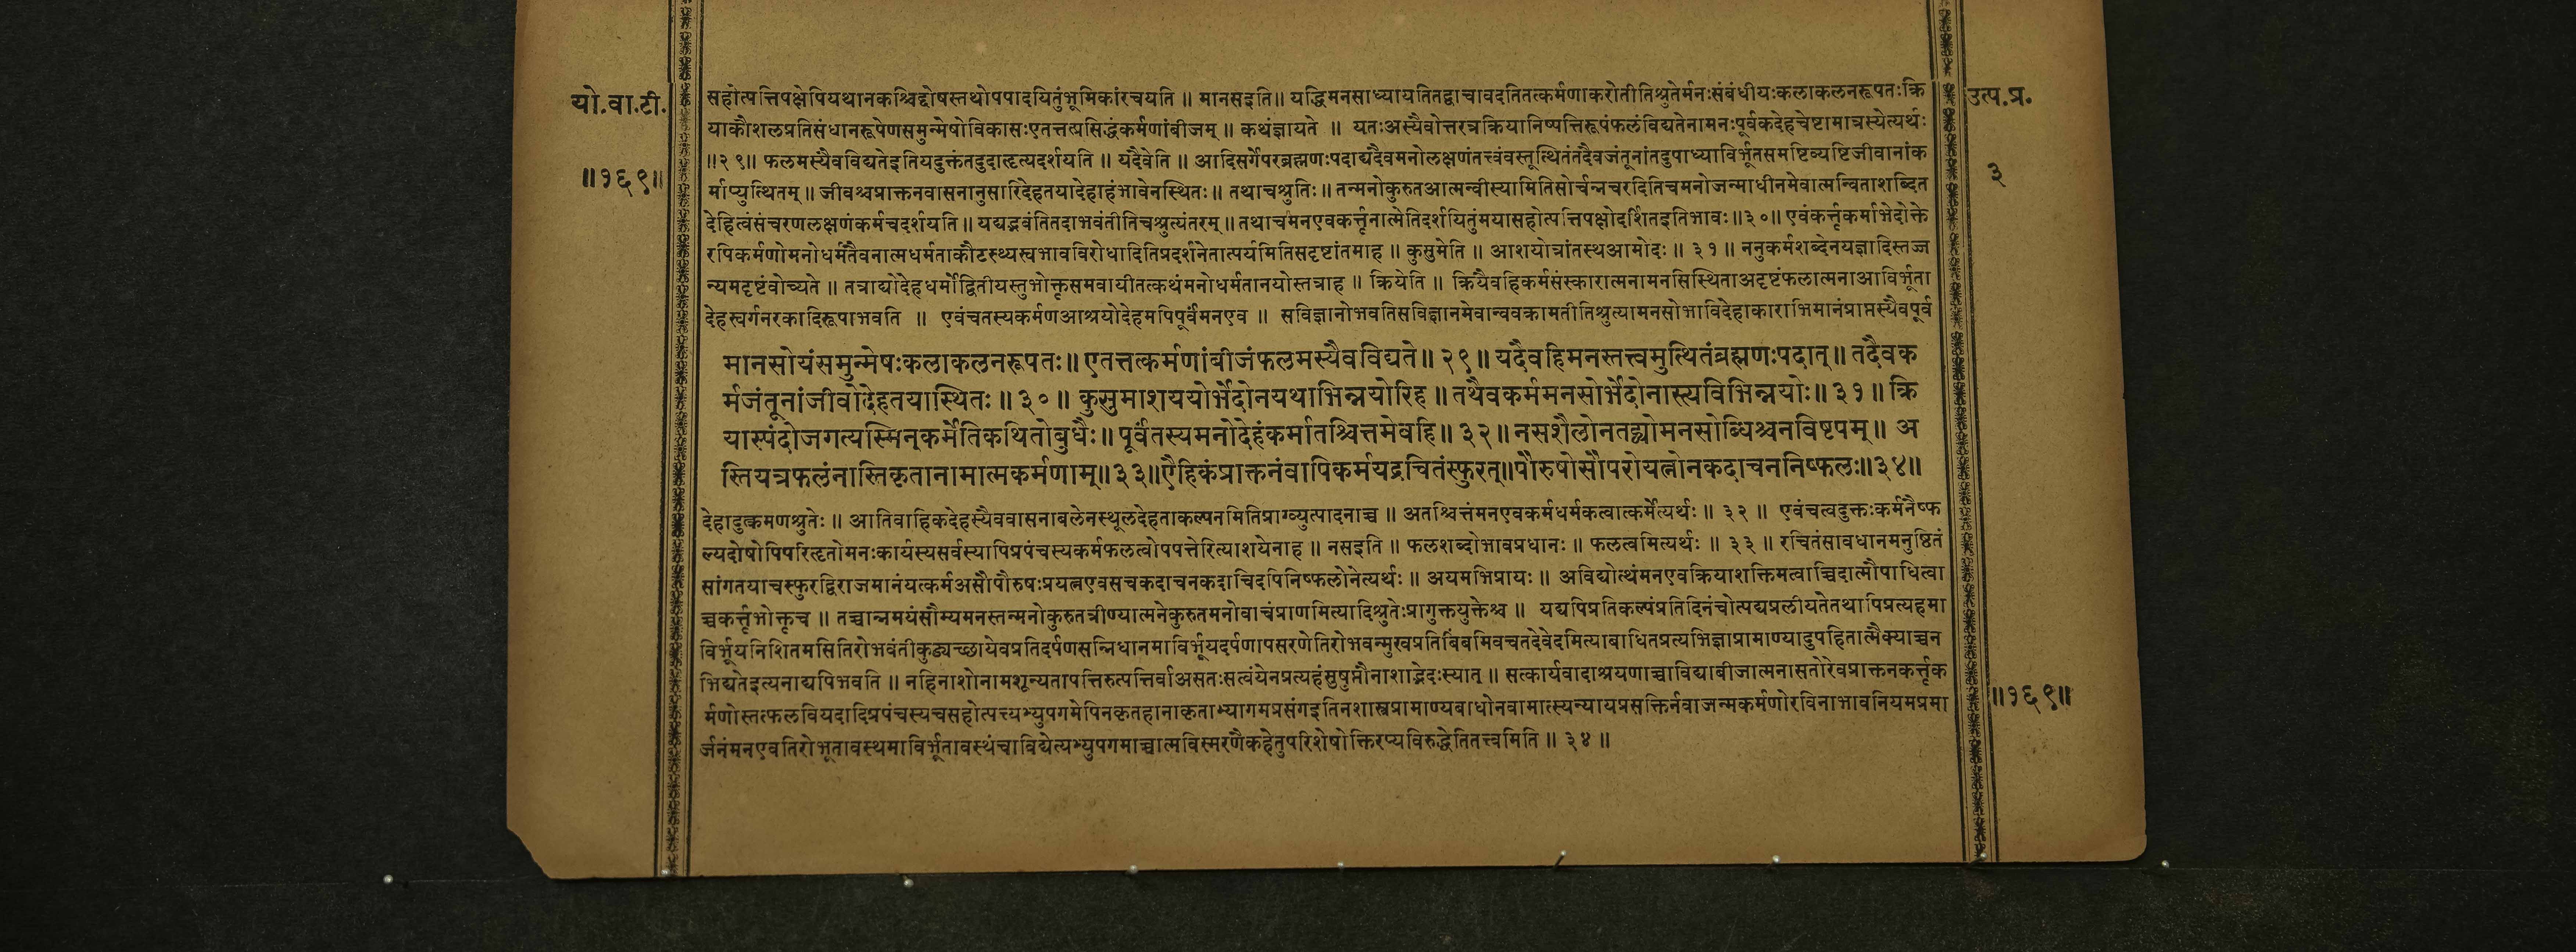 यो.वा.टी.
॥१६९॥
सहोत्पत्तिपक्षेपियथानकश्चिद्दोषस्तथोपपादयितुंभूमिकांरचयति ॥ मानसइति॥ यद्धिमनसाध्यायतितद्वाचावदतितत्कर्मणाकरोतीतिश्रुतेर्मनःसंबंधीयःकलाकलनरूपतःक्रि
याकौशलप्रतिसंधानरूपेणसमुन्मेषोविकासःएतत्तत्प्रसिद्धंकर्मणांबीजम् ॥ कथंज्ञायते ॥ यतःअस्यैवोत्तरत्रक्रियानिष्पत्तिरूपंफलंविद्यतेनामनःपूर्वकदेहचेष्टामात्रस्येत्यर्थः
॥२९॥ फलमस्यैवविद्यतेइतियदुक्तंतदुदाहृत्यदर्शयति ॥ यदैवेति ॥ आदिसर्गेपरब्रह्मणःपदाद्यदैवमनोलक्षणंतत्त्वंवस्तूत्थितंतदैवजंतूनांतदुपाध्याविर्भूतसमष्टिव्यष्टिजीवानांक
र्माप्युत्थितम् ॥ जीवश्चप्राक्तनवासनानुसारिदेहतयादेहाहंभावेनस्थितः ॥ तथाचश्रुतिः ॥ तन्मनोकुरुतआत्मन्वीस्यामितिसोर्चन्नचरदितिचमनोजन्माधीनमेवात्मन्विताशब्दित
देहित्वंसंचरणलक्षणंकर्मचदर्शयति ॥ यद्यद्भवंतितदाभवंतीतिचश्रुत्यंतरम् ॥ तथाचमनएवकर्त्तृनात्मेतिदर्शयितुंमयासहोत्पत्तिपक्षोदर्शितइतिभावः ॥३०॥ एवंकर्त्तृकर्माभेदोक्ते
रपिकर्मणोमनोधर्मतैवनात्मधर्मताकौटस्थ्यस्वभावविरोधादितिप्रदर्शनेतात्पर्यमितिसदृष्टांतमाह ॥ कुसुमेति ॥ आशयोत्रांतस्थआमोदः ॥ ३१ ॥ ननुकर्मशब्देनयज्ञादिस्तज्ज
न्यमदृष्टंवोच्यते ॥ तत्राद्योदेहधर्मोद्वितीयस्तुभोक्तृसमवायीतत्कथंमनोधर्मतानयोस्तत्राह ॥ क्रियेति ॥ क्रियैवहिकर्मसंस्कारात्मनामनसिस्थिताअदृष्टंफलात्मनाआविर्भूता
देहस्वर्गनरकादिरूपाभवति ॥ एवंचतस्यकर्मणआश्रयोदेहमपिपूर्वंमनएव ॥ सविज्ञानोभवतिसविज्ञानमेवान्ववकामतीतिश्रुत्यामनसोभाविदेहाकाराभिमानंप्राप्तस्यैवपूर्व
मानसोयंसमुन्मेषःकलाकलनरूपतः॥ एतत्तत्कर्मणांबीजंफलमस्यैवविद्यते॥ २९॥ यदैवहिमनस्तत्त्वमुत्थितंब्रह्मणःपदात्॥ तदैवक
र्मजंतूनांजीवोदेहतयास्थितः ॥ ३० ॥ कुसुमाशययोर्भेदोनयथाभिन्नयोरिह ॥ तथैवकर्ममनसोर्भेदोनास्त्यविभिन्नयोः॥ ३१ ॥ क्रि
यास्पंदोजगत्यस्मिन्कर्मेतिकथितोबुधैः॥ पूर्वंतस्यमनोदेहंकर्मातश्चित्तमेवहि॥ ३२ ॥ नसशैलोनतद्व्योमनसोब्धिश्चनविष्टपम्॥ अ
स्तियत्रफलंनास्तिकृतानामात्मकर्मणाम्॥३३॥ऐहिकंप्राक्तनंवापिकर्मयद्रचितंस्फुरत्॥पौरुषोसौपरोयत्नोनकदाचननिष्फलः॥३४॥
देहादुत्क्रमणश्रुतेः ॥ आतिवाहिकदेहस्यैववासनाबलेनस्थूलदेहताकल्पनमितिप्राग्व्युत्पादनाच्च ॥ अतश्चित्तंमनएवकर्मधर्मकत्वात्कर्मेत्यर्थः ॥ ३२ ॥ एवंचत्वदुक्तःकर्मनैष्फ
ल्यदोषोपिपरिहृतोमनःकार्यस्यसर्वस्यापिप्रपंचस्यकर्मफलत्वोपपत्तेरित्याशयेनाह ॥ नसइति ॥ फलशब्दोभावप्रधानः ॥ फलत्वमित्यर्थः ॥ ३३ ॥ रचितंसावधानमनुष्ठितं
सांगतयाचस्फुरद्विराजमानंयत्कर्मअसौपौरुषःप्रयत्नएवसचकदाचनकदाचिदपिनिष्फलोनेत्यर्थः ॥ अयमभिप्रायः ॥ अविद्योत्थंमनएवक्रियाशक्तिमत्वाच्चिदात्मौपाधित्वा
च्चकर्त्तृभोक्तृच ॥ तच्चान्नमयंसौम्यमनस्तन्मनोकुरुतत्रीण्यात्मनेकुरुतमनोवाचंप्राणमित्यादिश्रुतेःप्रागुक्तयुक्तेश्च ॥ यद्यपिप्रतिकल्पंप्रतिदिनंचोत्पद्यप्रलीयतेतथापिप्रत्यहमा
विर्भूयनिशितमसितिरोभवंतीकुड्यच्छायेवप्रतिदर्पणसन्निधानमाविर्भूयदर्पणापसरणेतिरोभवन्मुखप्रतिबिंबमिवचतदेवेदमित्याबाधितप्रत्यभिज्ञाप्रामाण्यादुपहितात्मैक्याच्चन
भिद्यतेइत्यनाद्यपिभवति ॥ नहिनाशोनामशून्यतापत्तिरुत्पत्तिर्वाअसतःसत्वंयेनप्रत्यहंसुषुप्तौनाशाद्भेदःस्यात् ॥ सत्कार्यवादाश्रयणाच्चाविद्याबीजात्मनासतोरेवप्राक्तनकर्त्तृक
र्मणोस्तत्फलवियदादिप्रपंचस्यचसहोत्पत्त्यभ्युपगमेपिनकृतहानाकृताभ्यागमप्रसंगइतिनशास्त्रप्रामाण्यबाधोनवामात्स्यन्यायप्रसक्तिर्नवाजन्मकर्मणोरविनाभावनियमप्रमा
र्जनंमनएवतिरोभूतावस्थमाविर्भूतावस्थंचाविद्येत्यभ्युपगमाच्चात्मविस्मरणैकहेतुपरिशेषोक्तिरप्यविरुद्धेतितत्त्वमिति ॥ ३४ ॥
उत्प.प्र.
३
॥१६९॥